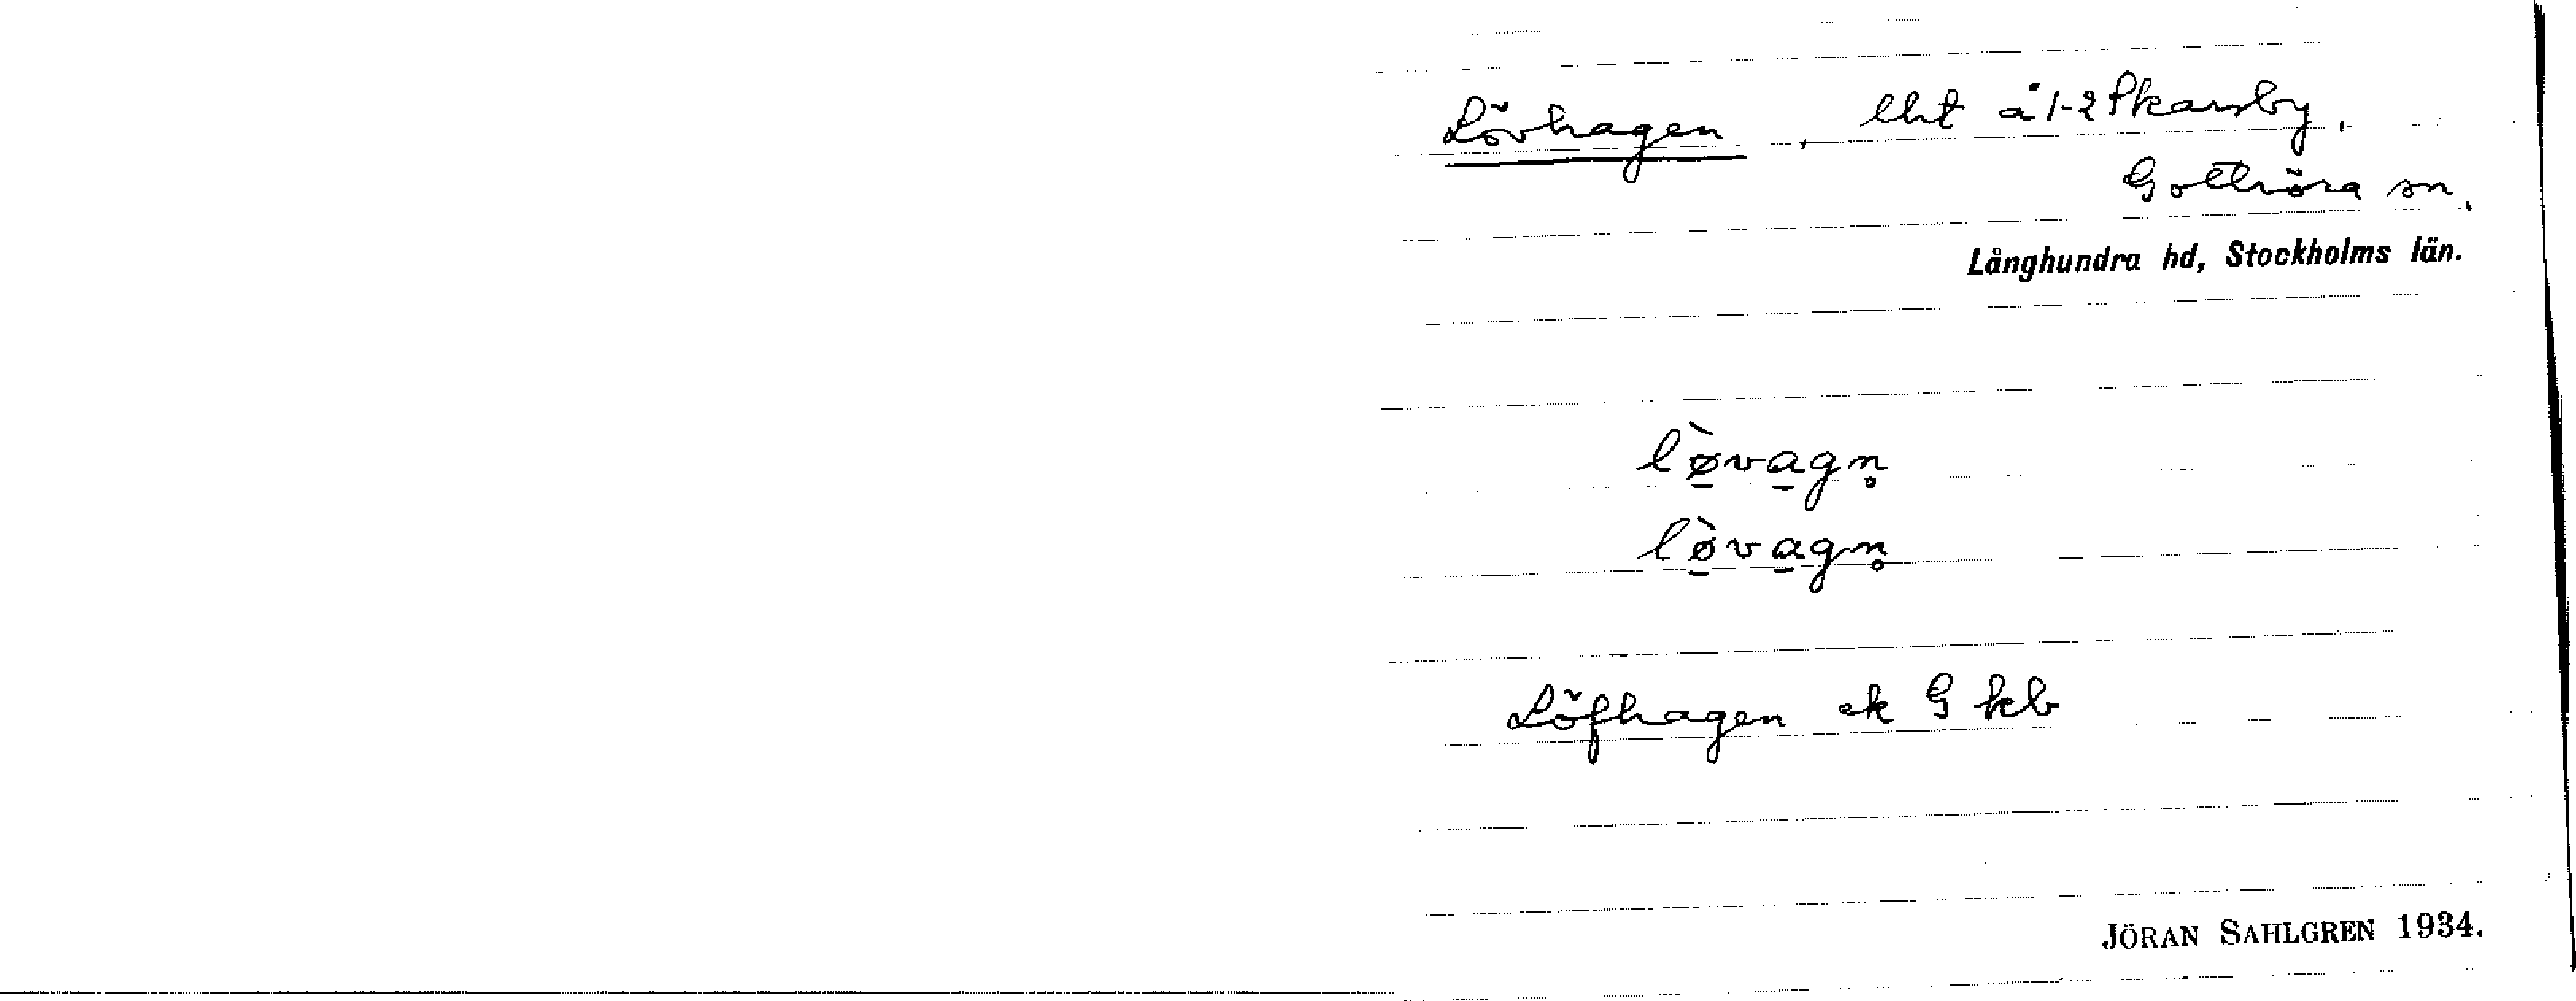 Lövhagen, lht å 1-2 Skarsby,
Gottröra sn,
Långhundra hd, Stockholms län.
lø̠̀va̠gn̥
lø̠̀va̠gn̥
Löfhagen ek G kb
JÖRAN SAHLGREN 1934.